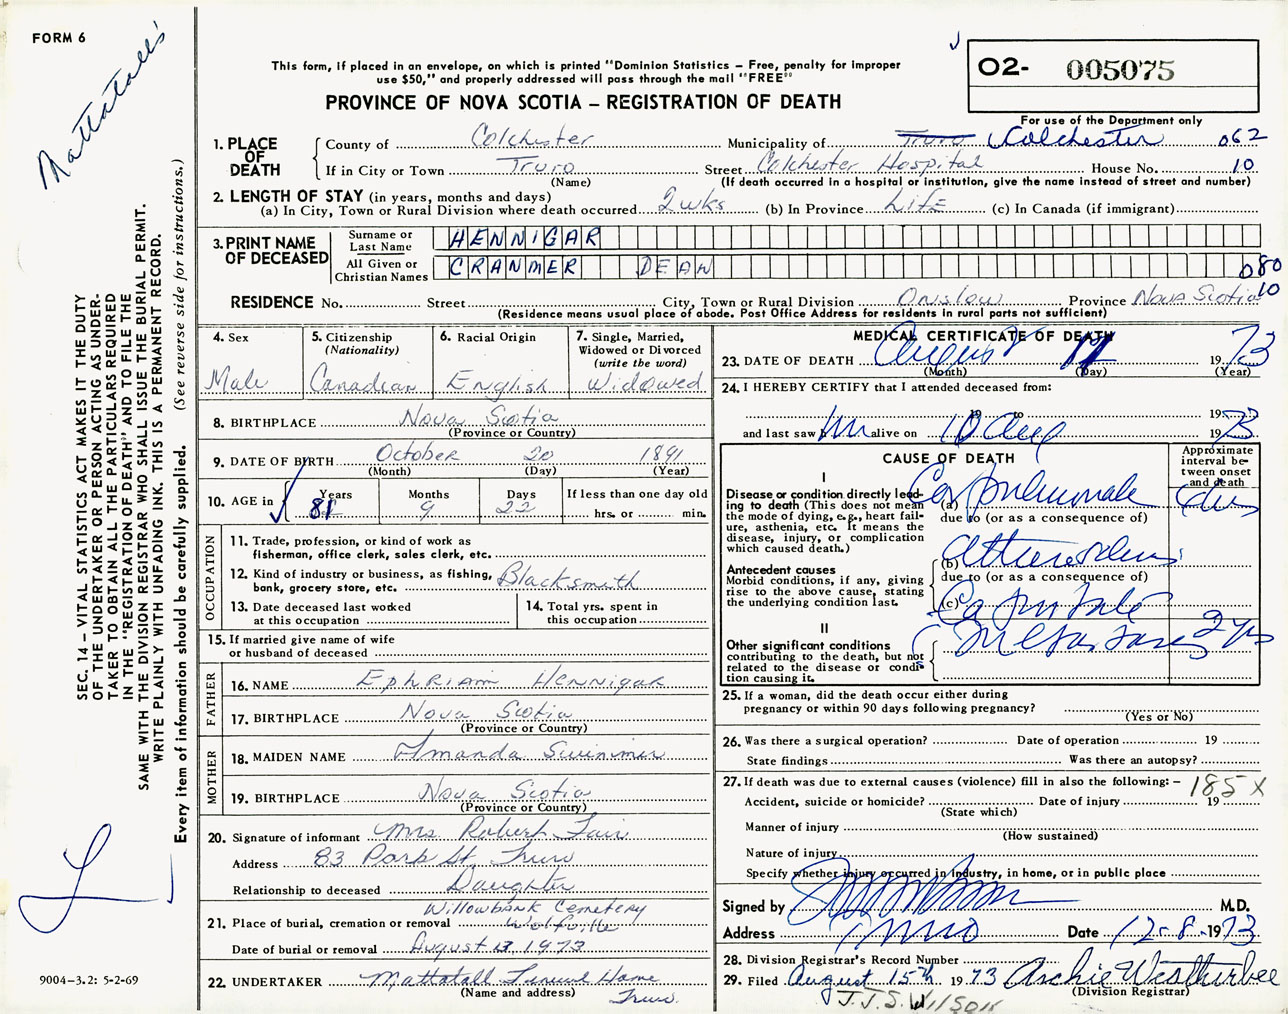 FORM 6
Mattatall's
This form, if placed in an envelope, on which is printed "Dominion Statistics – Free, penalty for improper
use $50," and properly addressed will pass through the mail "FREE"
PROVINCE OF NOVA SCOTIA – REGISTRATION OF DEATH
O2- 005075
For use of the Department only
1. PLACE OF DEATH
County of Colchester Municipality of Truro Colchester 062
If in City or Town Truro Street Colchester Hospital House No. 10
(Name) (If death occurred in a hospital or institution, give the name instead of street and number)
2. LENGTH OF STAY (in years, months and days)
(a) In City, Town or Rural Division where death occurred 2 wks (b) In Province LifE (c) In Canada (if immigrant)
3. PRINT NAME OF DECEASED
Surname or Last Name HENNIGAR
All Given or Christian Names CRANMER DEAN 080
RESIDENCE No. Street City, Town or Rural Division Onslow Province Nova Scotia 10
(Residence means usual place of abode. Post Office Address for residents in rural parts not sufficient)
4. Sex Male
5. Citizenship (Nationality) Canadian
6. Racial Origin English
7. Single, Married, Widowed or Divorced (write the word) Widowed
8. BIRTHPLACE Nova Scotia
(Province or Country)
9. DATE OF BIRTH October 20 1891
(Month) (Day) (Year)
10. AGE in Years 81 Months 9 Days 22 If less than one day old hrs. or min.
OCCUPATION
11. Trade, profession, or kind of work as
fisherman, office clerk, sales clerk, etc.
12. Kind of industry or business, as fishing,
bank, grocery store, etc. Blacksmith
13. Date deceased last worked
at this occupation
14. Total yrs. spent in
this occupation
15. If married give name of wife
or husband of deceased
FATHER
16. NAME Ephriam Hennigar
17. BIRTHPLACE Nova Scotia
(Province or Country)
MOTHER
18. MAIDEN NAME Amanda Swimmer
19. BIRTHPLACE Nova Scotia
(Province or Country)
20. Signature of informant Mrs Robert Fair
Address 83 Park St. Truro
Relationship to deceased Daughter
21. Place of burial, cremation or removal Willowbank Cemetery Wolfville
Date of burial or removal August 13, 1973
22. UNDERTAKER Mattatall Funeral Home
(Name and address) Truro.
MEDICAL CERTIFICATE OF DEATH
23. DATE OF DEATH August 1973
(Month) (Day) (Year)
24. I HEREBY CERTIFY that I attended deceased from:
19 to 19
and last saw him alive on 10 Aug 1973
CAUSE OF DEATH
Approximate interval between onset and death
I
Disease or condition directly leading to death (This does not mean the mode of dying, e.g., heart failure, asthenia, etc. It means the disease, injury, or complication which caused death.)
(a) Cor pulmonale
due to (or as a consequence of)
Antecedent causes
Morbid conditions, if any, giving rise to the above cause, stating the underlying condition last.
(b)
due to (or as a consequence of)
(c) Ca prostate
II
Other significant conditions contributing to the death, but not related to the disease or condition causing it.
Metastases 2 yrs
25. If a woman, did the death occur either during
pregnancy or within 90 days following pregnancy?
(Yes or No)
26. Was there a surgical operation? Date of operation 19
State findings Was there an autopsy?
27. If death was due to external causes (violence) fill in also the following: – 185X
Accident, suicide or homicide? Date of injury 19
(State which)
Manner of injury
(How sustained)
Nature of injury
Specify whether injury occurred in industry, in home, or in public place
Signed by M.D.
Address Truro Date 12-8-1973
28. Division Registrar's Record Number
29. Filed August 15th 1973 Archie Weatherbee
(Division Registrar)
J.J.S. Wilson
SEC. 14 – VITAL STATISTICS ACT MAKES IT THE DUTY
OF THE UNDERTAKER OR PERSON ACTING AS UNDER-
TAKER TO OBTAIN ALL THE PARTICULARS REQUIRED
IN THE "REGISTRATION OF DEATH" AND TO FILE THE
SAME WITH THE DIVISION REGISTRAR WHO SHALL ISSUE THE BURIAL PERMIT.
WRITE PLAINLY WITH UNFADING INK. THIS IS A PERMANENT RECORD.
Every item of information should be carefully supplied. (See reverse side for instructions.)
9004–3.2: 5-2-69